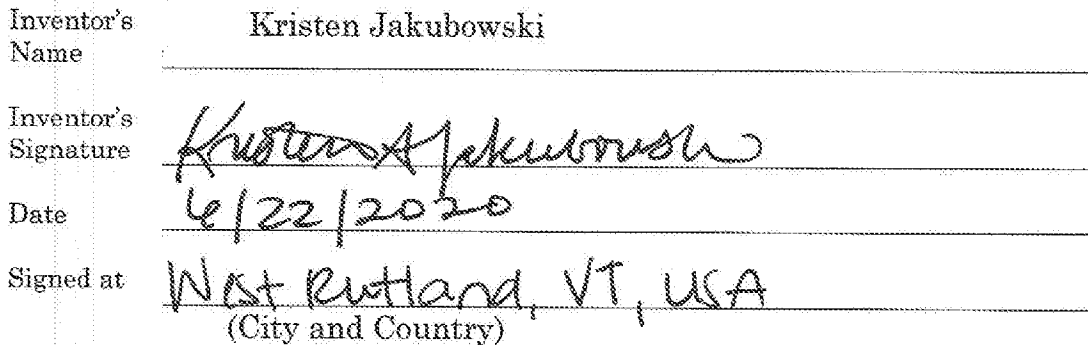 Inventor's Name Kristen Jakubowski
Inventor's Signature Kristen A Jakubowski
Date 6/22/2020
Signed at West Rutland, VT, USA
(City and Country)